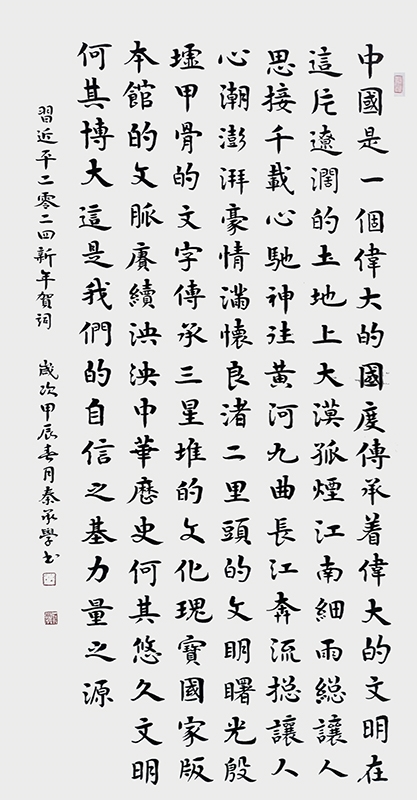 中國是一個偉大的國度傳承着偉大的文明在
這片遼闊的土地上大漠孤煙江南細雨總讓人
思接千載心馳神往黃河九曲長江奔流總讓人
心潮澎湃豪情滿懷良渚二里頭的文明曙光殷
墟甲骨的文字傳承三星堆的文化瑰寶國家版
本館的文脈賡續泱泱中華歷史何其悠久文明
何其博大這是我們的自信之基力量之源
習近平二零二四新年賀詞 歲次甲辰春月秦承學书